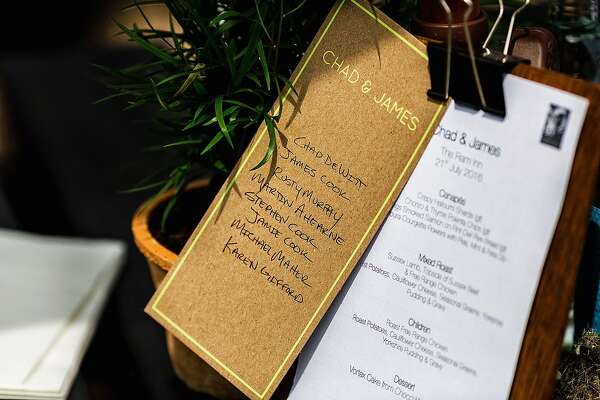 CHAD & JAMES
CHAD DEWITT
JAMES COOK
RUSTY MURPHY
MARTIN AHEARNE
STEPHEN COOK
JAMIE COOK
MICHAEL MAHER
KAREN GIFFARD
Chad & James
The Ram Inn
21st July 2016
Canapés
Crispy Halloumi Shards (gf)
Chorizo & Thyme Polenta Chips (gf)
Smoked Salmon on
Courgette Flowers with Pea, Mint & Feta (gf)
Mixed Roast
Sussex Lamb, Topside of Sussex Beef
& Free Range Chicken
Potatoes, Cauliflower Cheese, Seasonal Greens, Yorkshire
Pudding & Gravy
Children
Roast Free Range Chicken
Roast Potatoes, Cauliflower Cheese, Seasonal Greens,
Yorkshire Pudding & Gravy
Dessert
Vortex Cake from Choccy